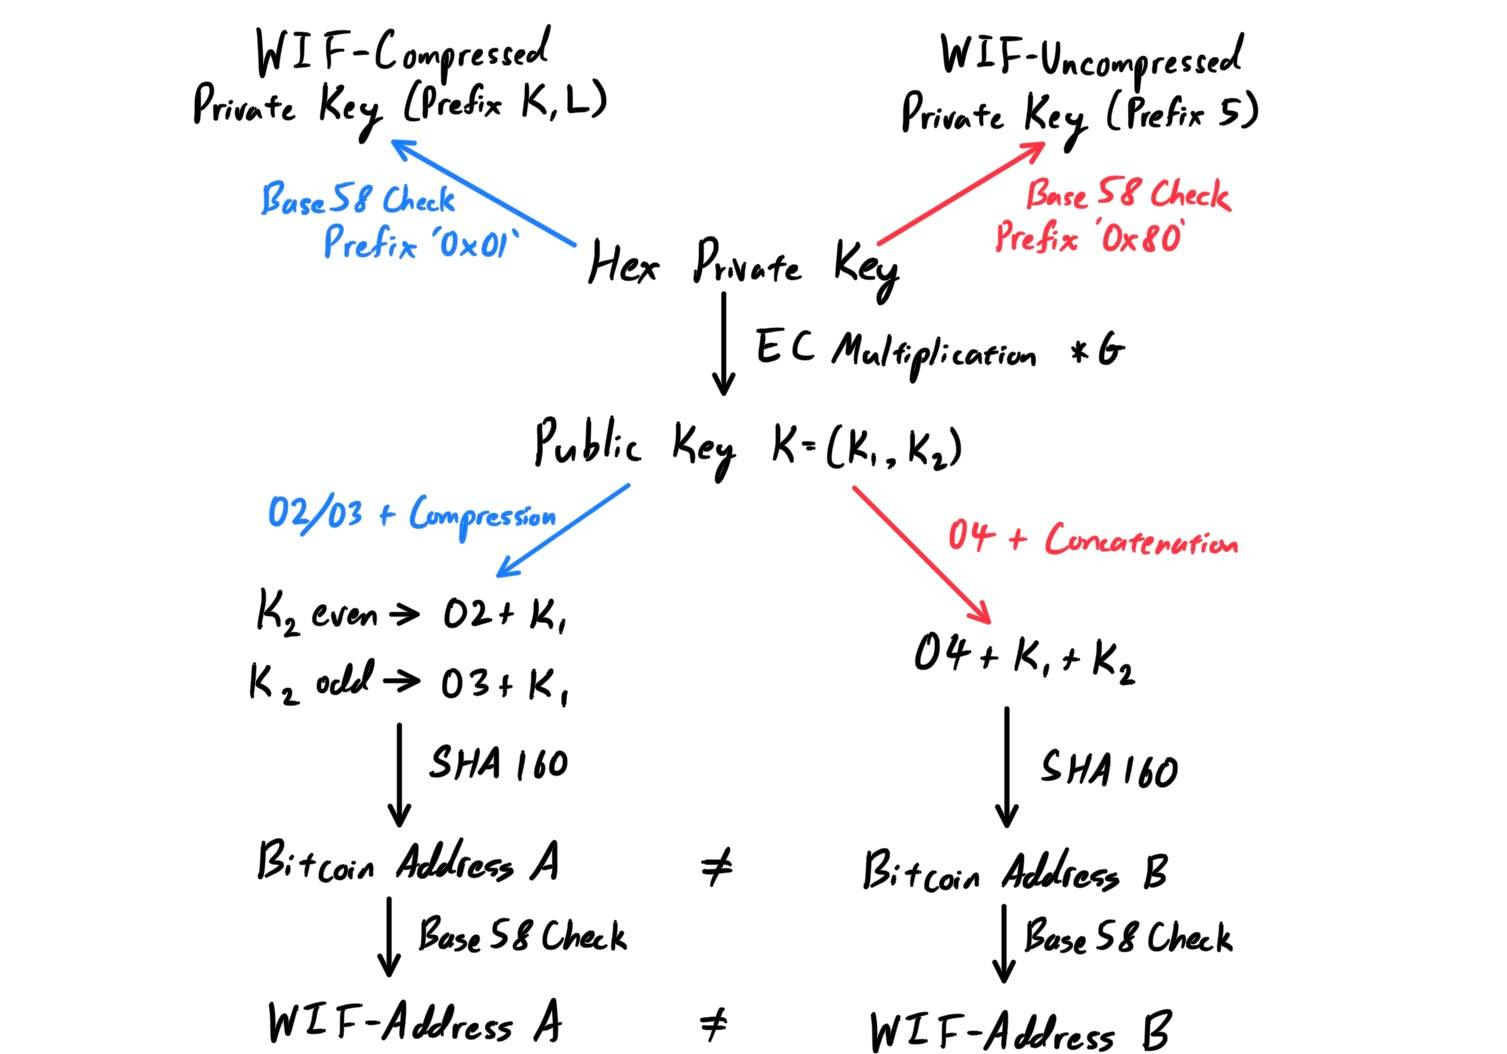 WIF-Compressed
Private Key (Prefix K,L)
WIF-Uncompressed
Private Key (Prefix 5)
Base58 Check
Prefix '0x01`
Base 58 Check
Prefix '0x80'
Hex Private Key
EC Multiplication *G
Public Key K=(K₁, K₂)
02/03 + Compression
04 + Concatenation
K₂ even → 02+ K₁
K₂ odd → 03+ K₁
04+ K₁ + K₂
SHA 160
SHA 160
Bitcoin Address A ≠ Bitcoin Address B
Base 58 Check
Base 58 Check
WIF-Address A ≠ WIF-Address B